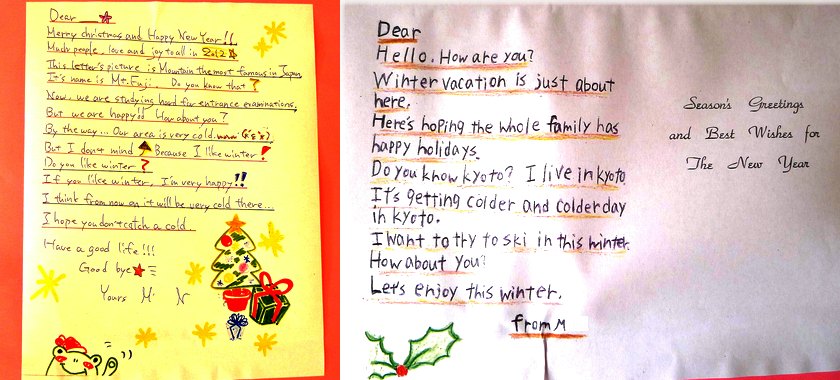 Dear
Merry christmas and Happy New Year!!
Much people, love and joy to all in 2012
This letter's picture is Mountain the most famous in Japan
It's name is Mt.Fuji. Do you know that?
Now, we are studying hard for entrance examinations.
But we are happy How about you?
By the way... Our area is very cold.
But I don't mind Because I like winter!
Do you like winter?
If you like winter, I'm very happy!!
I think from now on it will be very cold there...
I hope you don't catch a cold...
Have a good life!!!
Good bye★
Yours M. N
Dear
Hello. How are you?
Winter vacation is just about
here.
Here's hoping the whole family has
happy holidays.
Do you know kyoto? I live in kyoto
It's getting colder and colder day
in kyoto.
I want to try to ski in this winter.
How about you?
Let's enjoy this winter.
from M
Season's Greetings
and Best Wishes for
The New Year